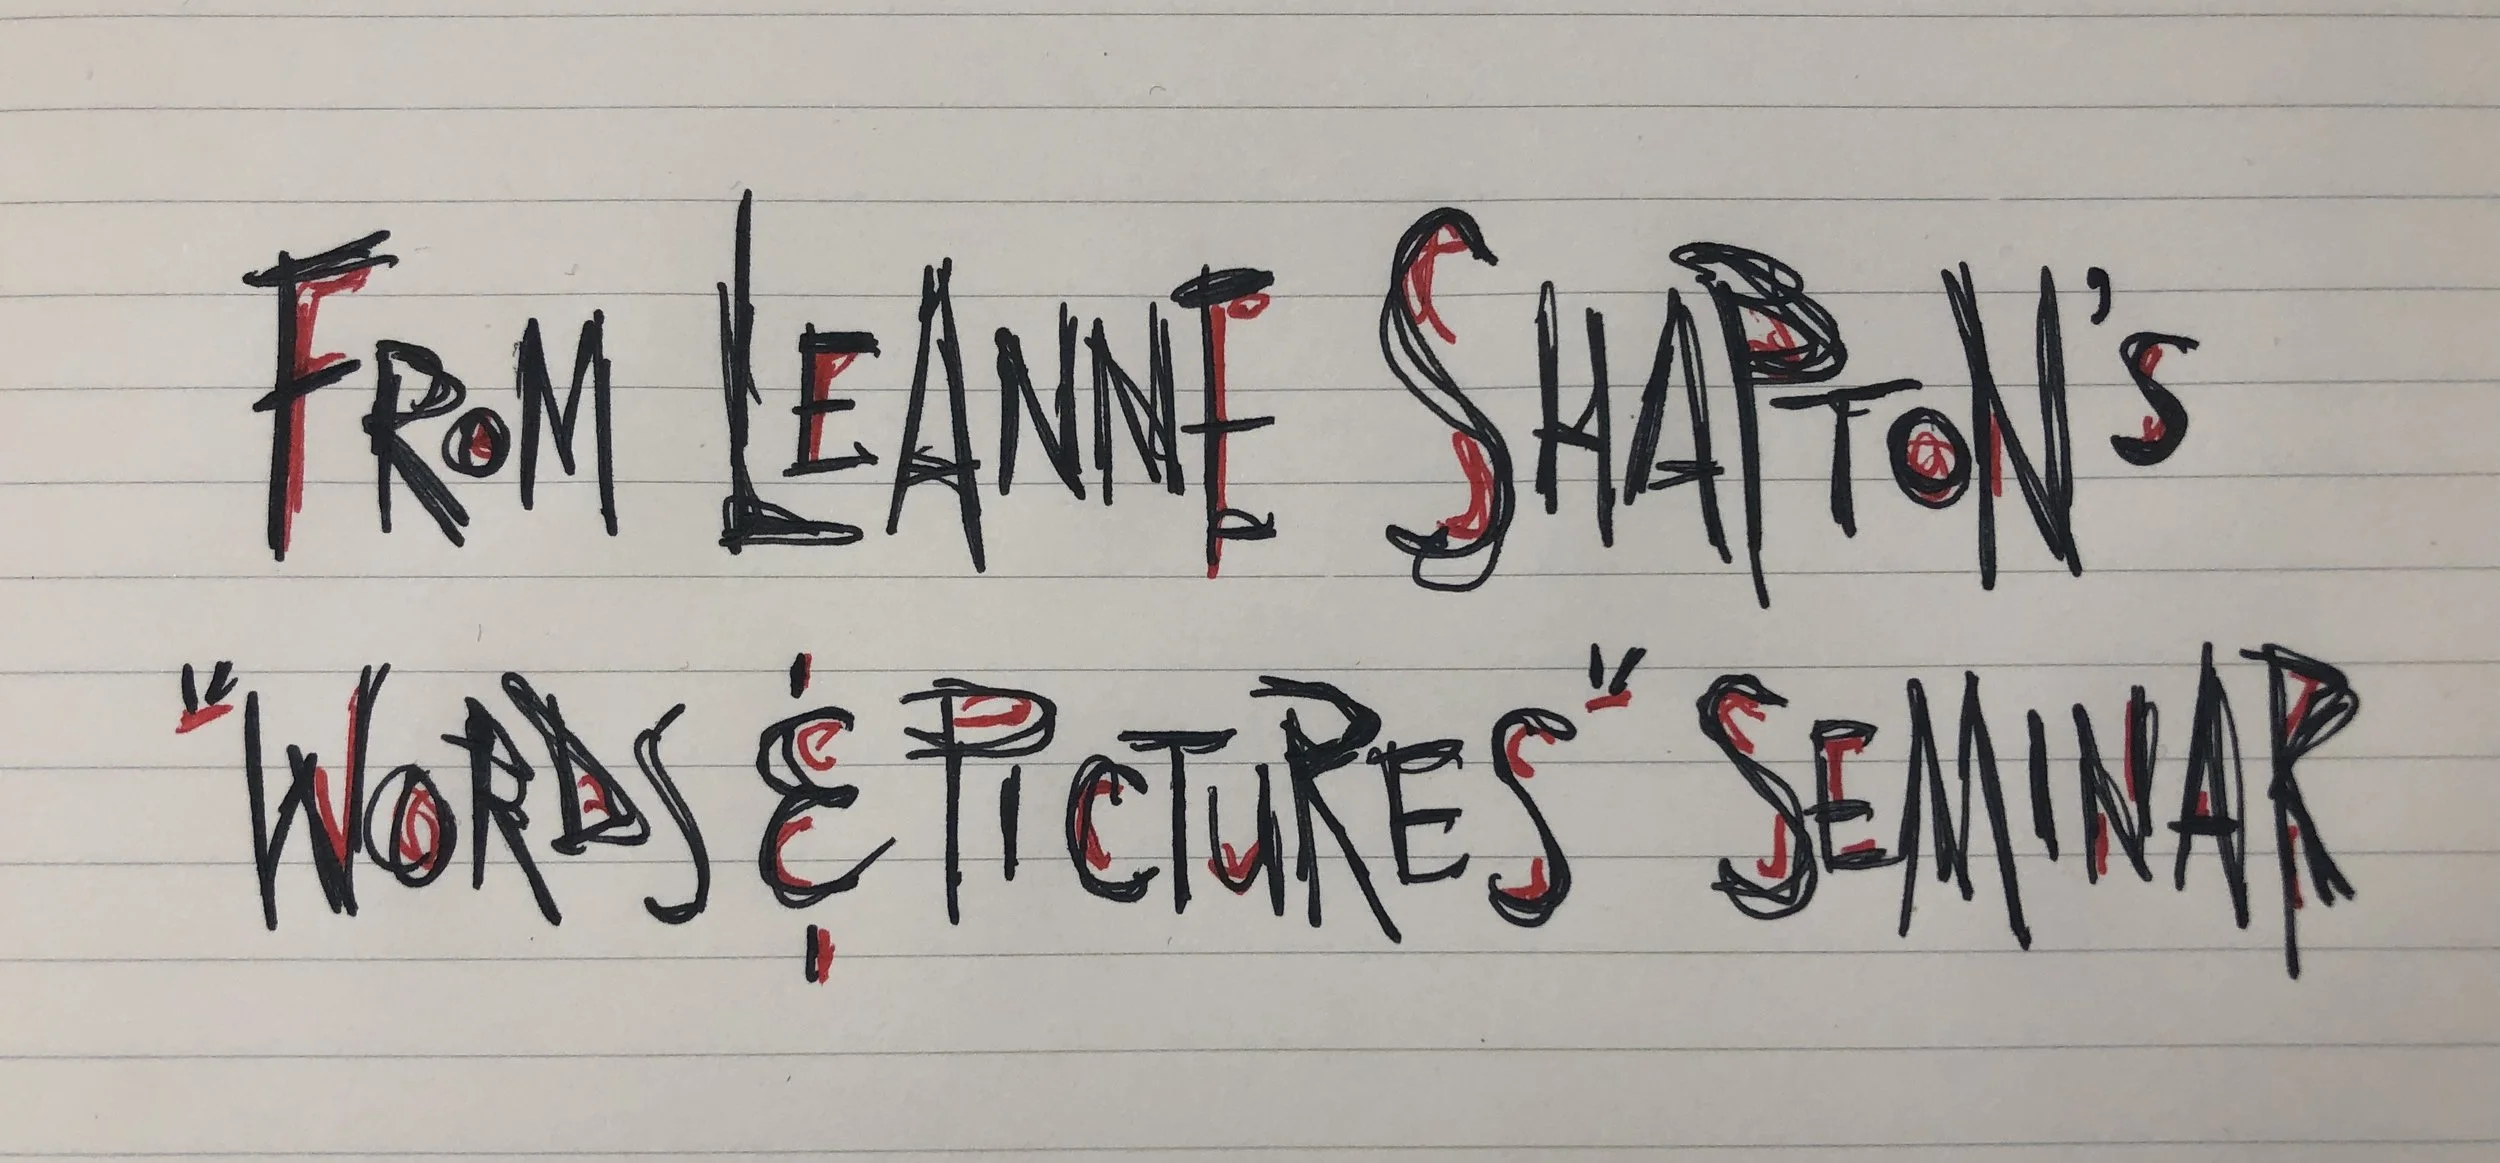 From Leanne Shapton's
"Words & Pictures" Seminar